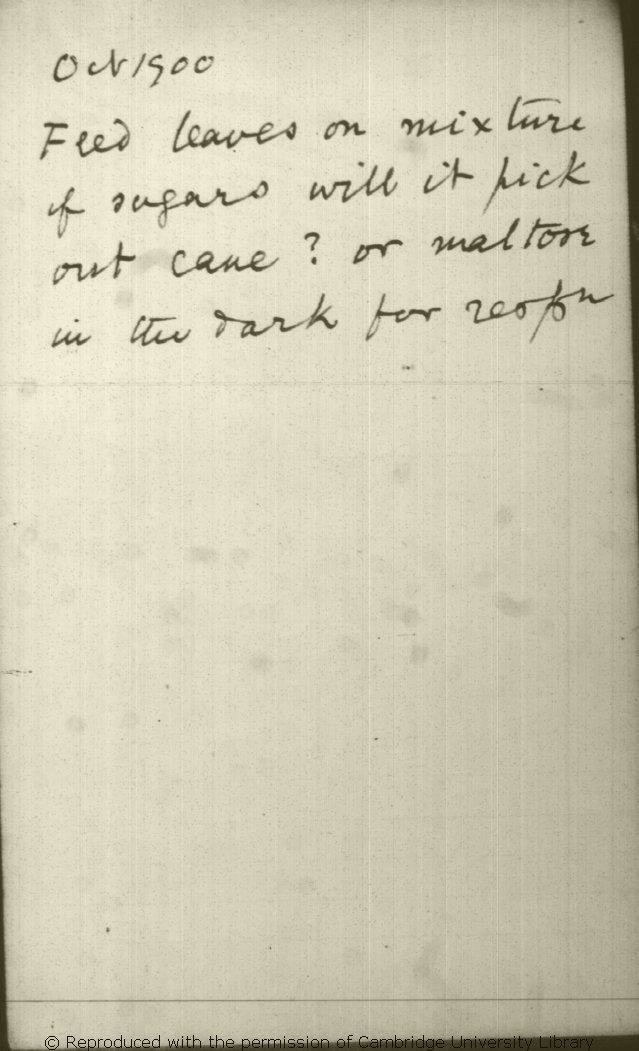 Oct 1900
Feed leaves on mixture
of sugars will it pick
out cane? or maltose
in the dark for respn
© Reproduced with the permission of Cambridge University Library